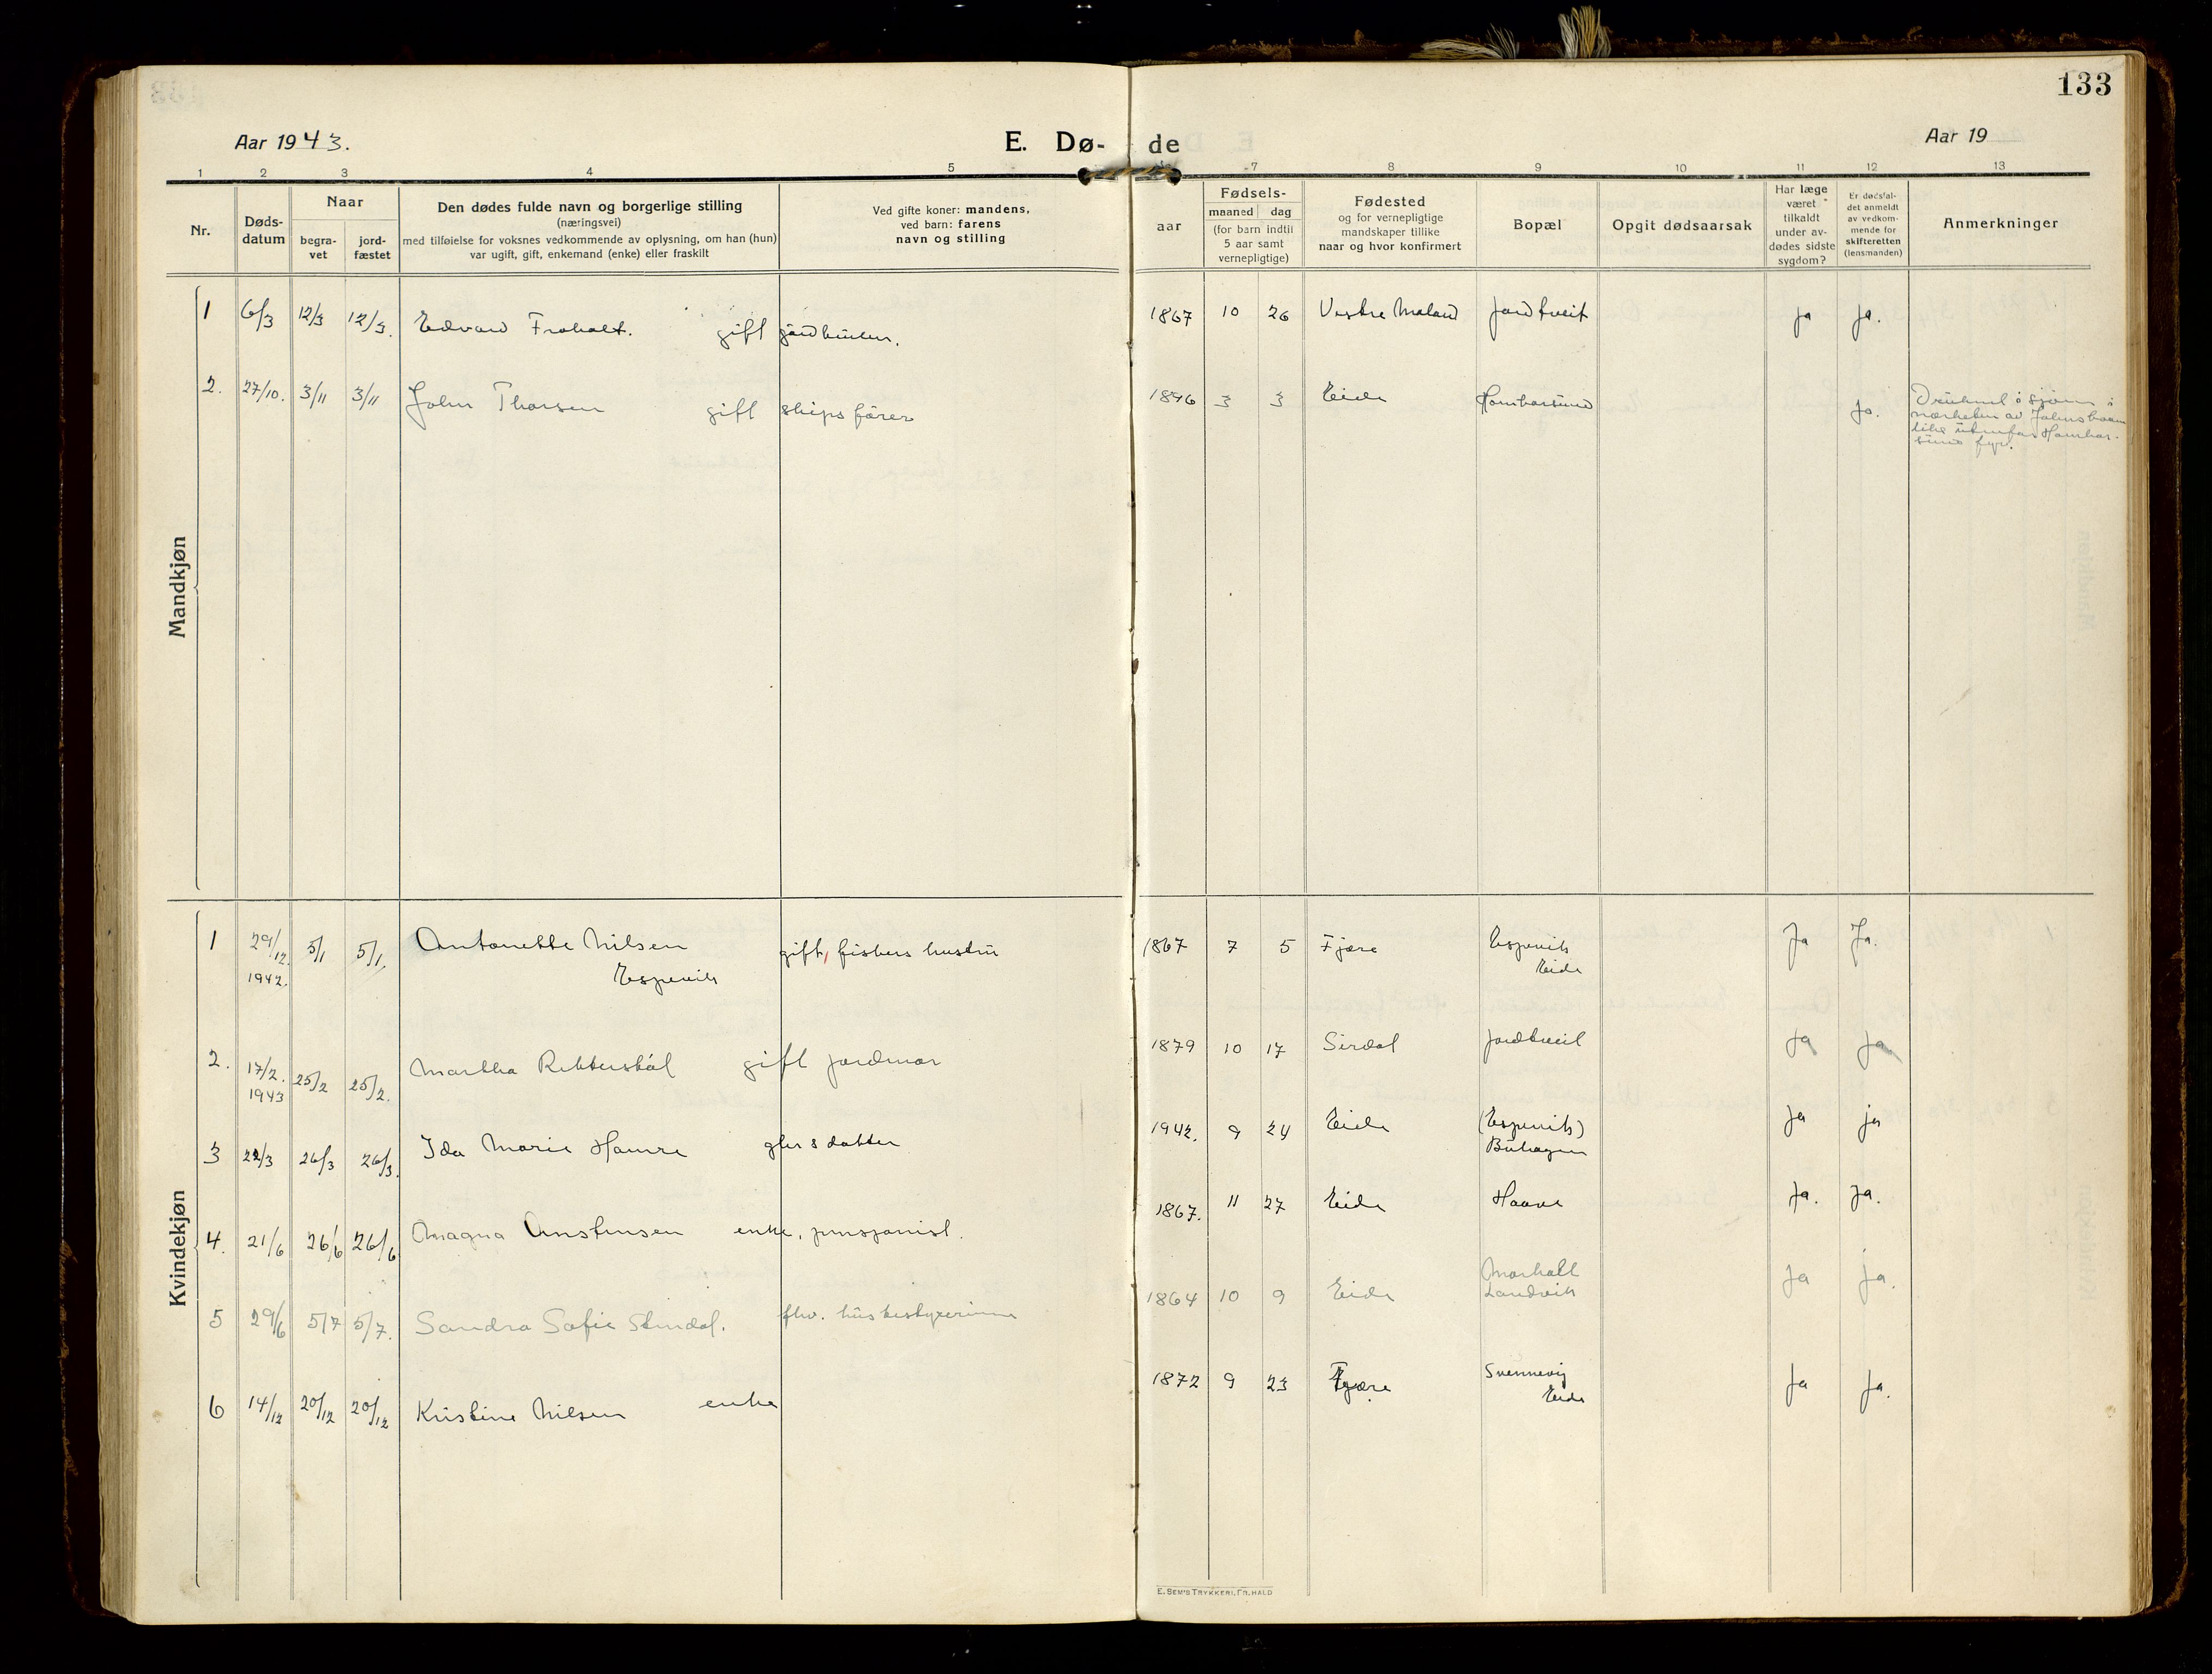 133
Aar 1943.
E. Dø-
de
Aar 19
1 2 3 4 5 7 8 9 10 11 12 13
Nr.
Døds-
datum
Naar
begra-
vet
jord-
fæstet
Den dødes fulde navn og borgerlige stilling
(næringsvei)
med tilføielse for voksnes vedkommende av oplysning, om han (hun)
var ugift, gift, enkemand (enke) eller fraskilt
Ved gifte koner: mandens,
ved barn: farens
navn og stilling
Fødsels-
aar
maaned dag
(for barn indtil
5 aar samt
vernepligtige)
Fødested
og for vernepligtige
mandskaper tillike
naar og hvor konfirmert
Bopæl
Opgit dødsaarsak
Har læge
været
tilkaldt
under av-
dødes sidste
sygdom?
Er dødsfal-
det anmeldt
av vedkom-
mende for
skifteretten
(lensmanden)
Anmerkninger
Mandkjøn
1 6/3 12/3 12/3. Edvard Froholt. gift gårdbruker. 1867 10 26 Vestre Moland Jordtveit ja ja.
2. 27/10. 3/11 3/11 John Thorsen gift skipsfører 1896 3 3 Eide Homborsund ja.
Druknet i sjøen i
nærheten av
like utenfor Hombor-
sund fyr.
Kvindekjøn
1 29/12. 1942. 5/1 5/1. Antonette Nilsen gift, fiskers hustru 1867 7 5 Fjære Espevik Ja Ja.
Espevik
Eide
2. 17/2. 1943 25/2 25/2. Martha Rekterskål gift jordmor 1879 10 17 Sirdal Jordtveit Ja Ja
3 22/3 26/3 26/3. Ida Marie Hamre datter 1942. 9 24 Eide (Espevik) Ja ja
Buhagen
4. 21/6 26/6 26/6 Magna Anstensen enke, pensjonist. 1867. 11 27 Eide Haave Ja. Ja.
5 29/6 5/7 5/7. Sandra Sofie Stendal. fhv. husbestyrerinne 1864 10 9 Eide Morholt Ja ja.
Landvik
6 14/12 20/12 20/12 Kristine Nilsen enke 1872 9 23 Fjære Svennevig Ja Ja.
Eide
E. SEM'S TRYKKERI, FR.HALD